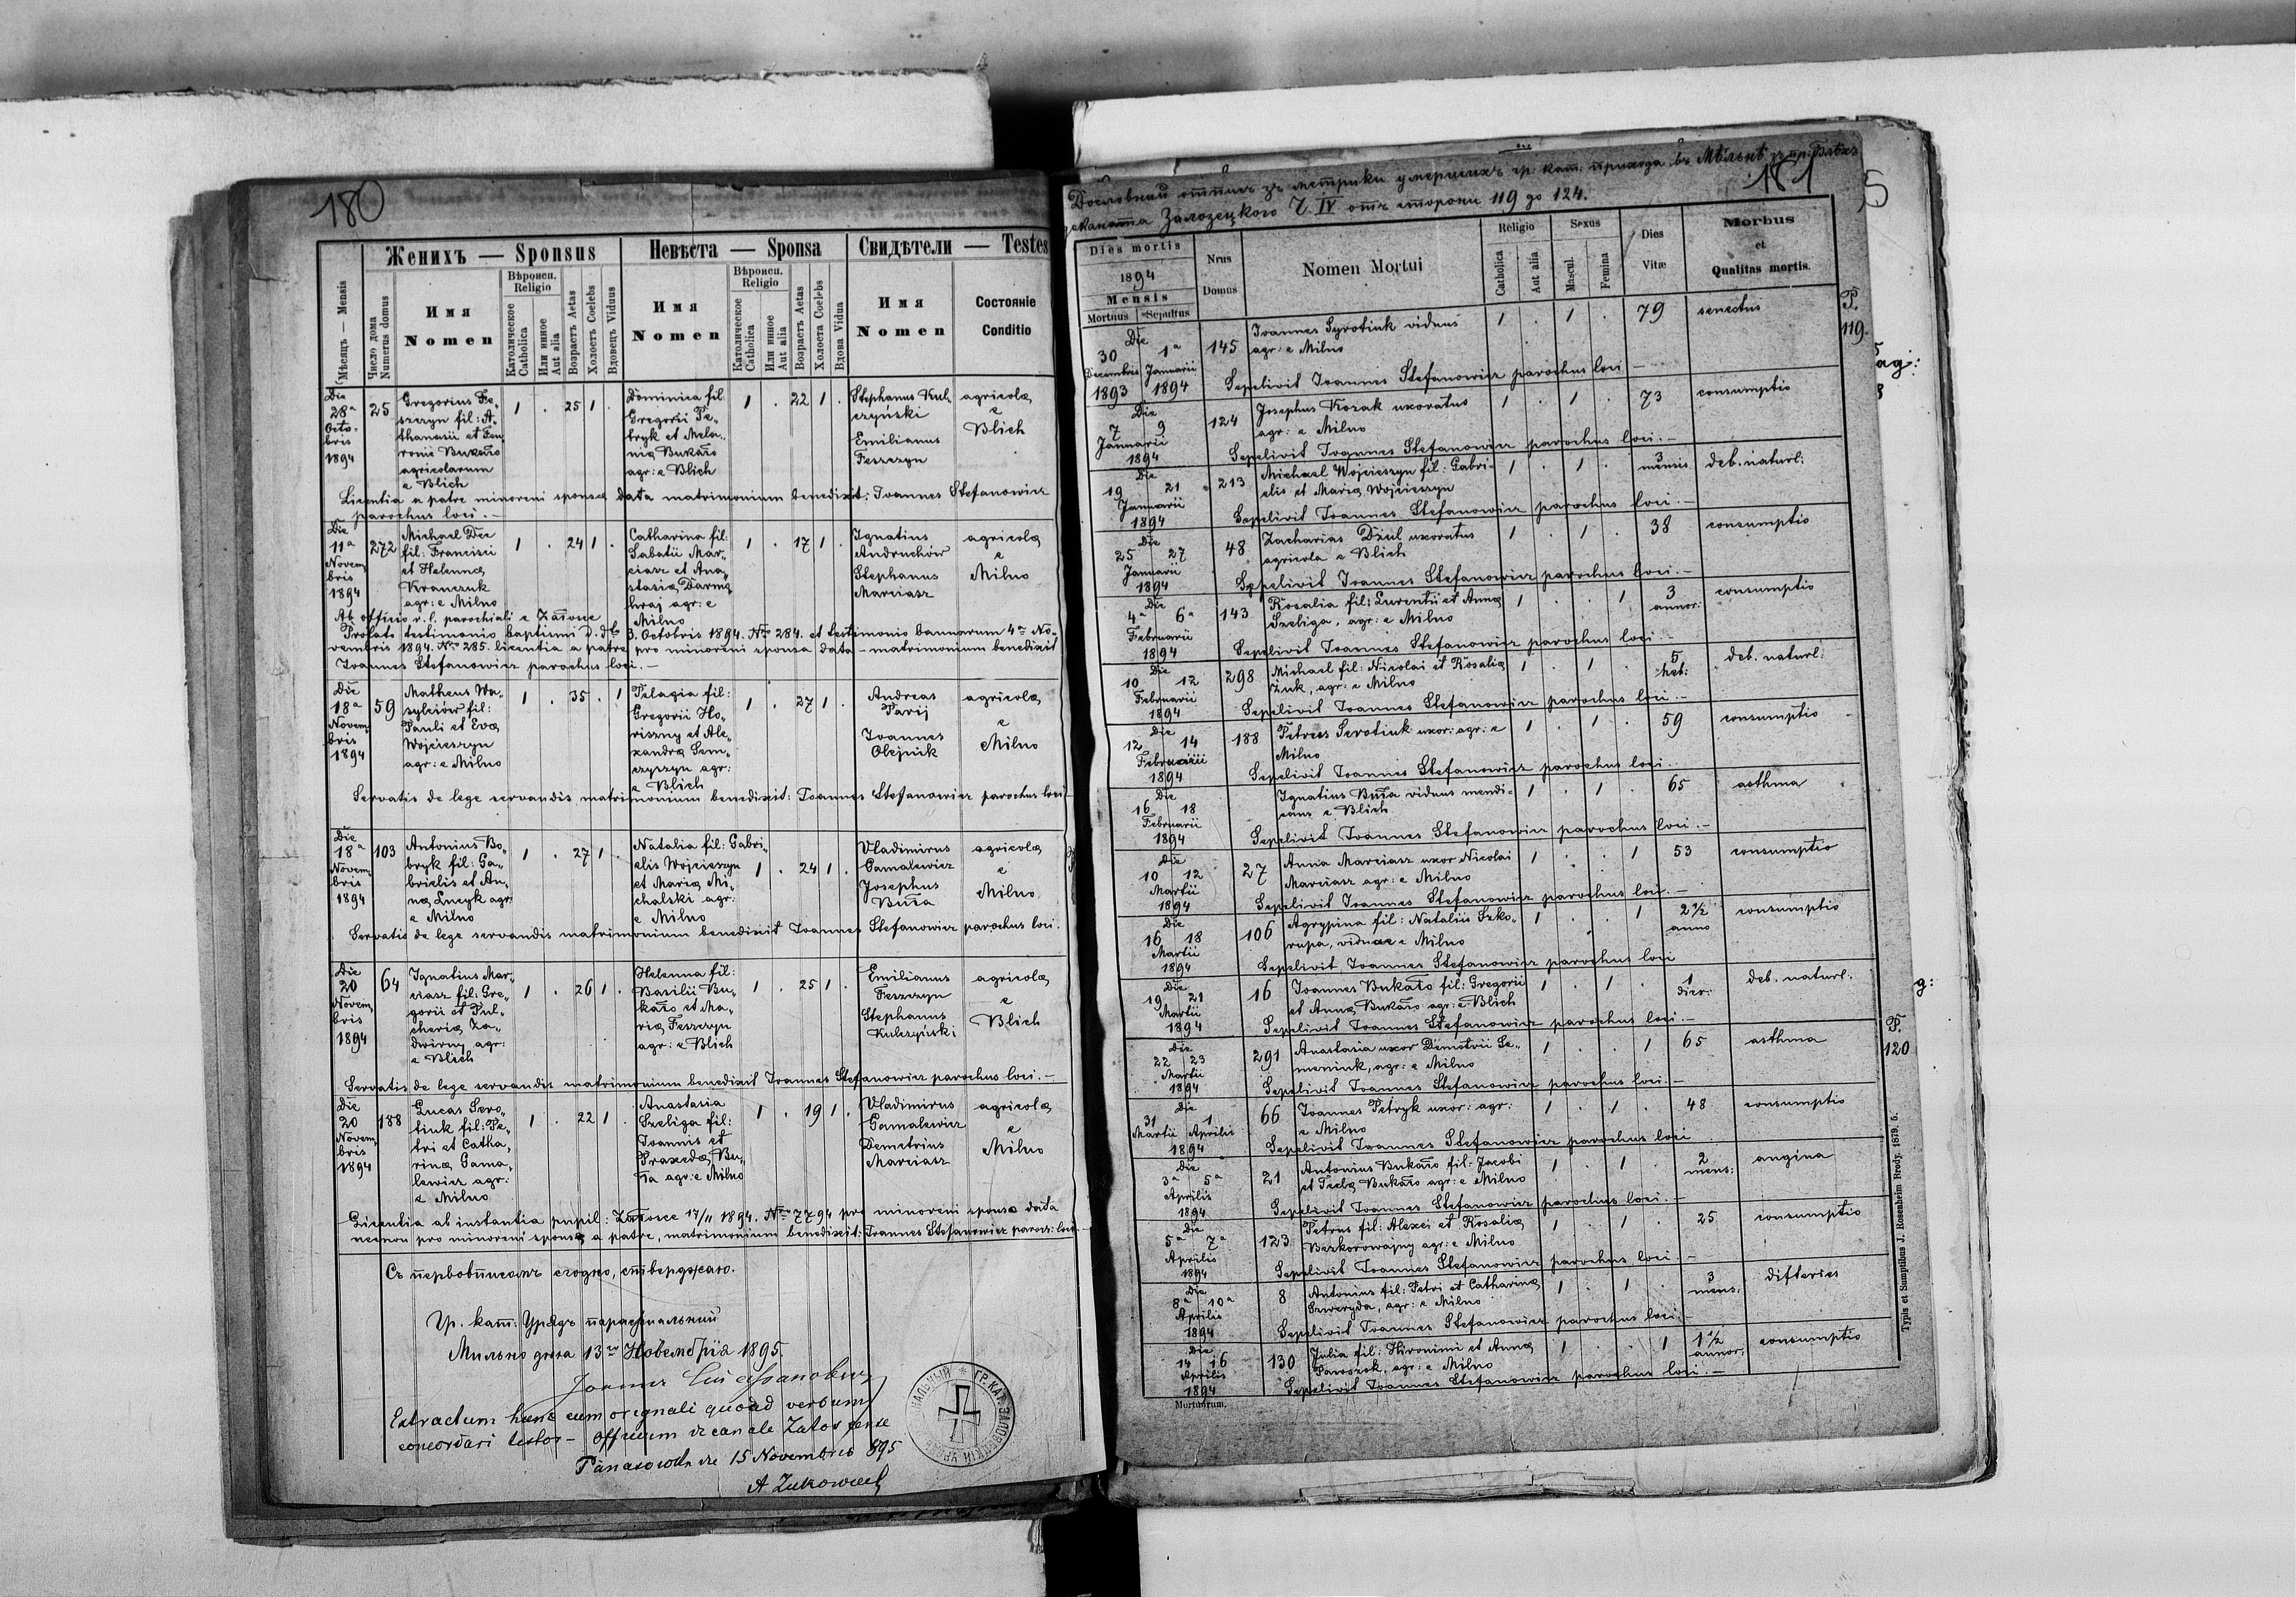 180
Женихъ — Sponsus
Невѣста — Sponsa
Свидѣтели — Testes
Мѣсяцъ — Mensis
Число дома
Numerus domus
Имя
Nomen
Вѣроисп.
Religio
Католическое
Catholica
Или иное
Aut alia
Возрастъ Aetas
Холостъ Coelebs
Вдовецъ Viduus
Имя
Nomen
Вѣроисп.
Religio
Католическое
Catholica
Или иное
Aut alia
Возрастъ Aetas
Холоста Coelebs
Вдова Vidua
Имя
Nomen
Состояніе
Conditio
Die
28ª
Octo-
bris
1894
25
Gregorius Fe-
szczyn fil: A-
thanasii et
Bukało
agricolarum
e Blich
1 . 25 1 .
Dominica fil:
Gregorii Pe-
tryk et Mela-
nia Bukało
agr: e Blich
1 . 22 1 .
Stephanus Kul-
czyński
Emilianus
Feszczyn
agricolæ
e
Blich
Licentia a patre minoreni sponsæ data matrimonium benedixit: Joannes Stefanowicz
parochus loci. —
Die
11ª
Novem-
bris
1894
272
Michael Dec
fil: Francisci
et Helenna
Krawczuk
agr: e Milno
1 . 24 1 .
Catharina fil:
Sabatii Mar-
ciasz et Ana-
stasia Darmo-
hraj agr: e
Milno
1 . 17 1 .
Ignatius
Andruchów
Stephanus
Marciasz
agricolæ
e
Milno
Ab officio r. l. parochiali e Załosce
Prolato testimonio baptismi d. dto 3. Octobris 1894. Nro 284. et testimonio bannorum 4ª No-
vembris 1894. Nro 285. licentia a patre pro minoreni sponsa data — matrimonium benedixit
Joannes Stefanowicz parochus loci. —
Die
18ª
Novem-
bris
1894
59
Matheus Wa-
sylciów fil:
Pauli et Eva
Wojcieszyn
agr: e Milno
1 . 35 . 1
Pelagia fil:
Gregorii Ho-
riszny et Ale-
xandra Sem-
czyszyn agr:
e Blich
1 . 27 1 .
Andreas
Parij
Joannes
Olejnik
agricolæ
e
Milno
Servatis de lege servandis matrimonium benedixit: Joannes Stefanowicz parochus loci —
Die
18ª
Novem-
bris
1894
103
Antonius Bo-
bryk fil: Ga-
brielis et An-
na Łucyk agr:
e Milno
1 . 27 1 .
Natalia fil: Gabri-
elis Wojcieszyn
et Maria Mi-
chalski agr:
e Milno
1 . 24 1 .
Vladimirus
Gamalewicz
Josephus
Buła
agricolæ
e
Milno
Servatis de lege servandis matrimonium benedixit Joannes Stefanowicz parochus loci.
Die
20
Novem-
bris
1894
64
Ignatius Mar-
ciasz fil: Gre-
gorii et Pul-
cheria Za-
dwirny agr:
e Blich
1 . 26 1 .
Helenna fil:
Basilii Bu-
kało et Ma-
ria Feszczyn
agr: e Blich
1 . 25 1 .
Emilianus
Feszczyn
Stephanus
Kulczyński
agricolæ
e
Blich
Servatis de lege servandis matrimonium benedixit Joannes Stefanowicz parochus loci. —
Die
20
Novem-
bris
1894
188
Lucas Sero-
tiuk fil: Pe-
tri et Catha-
rina Gama-
lewicz agr:
e Milno
1 . 22 1 .
Anastasia
Szeliga fil:
Joannis et
Praxeda Bu-
ła agr: e Milno
1 . 19 1 .
Vladimirus
Gamalewicz
Demetrius
Marciasz
agricolæ
e
Milno
Licentia ab instantia pupil: Załosce 17/11 1894. Nro 7794 pro minoreni sponso data
necnon pro minoreni sponsæ a patre, matrimonium benedixit: Joannes Stefanowicz paroch: loci —
Съ первописомъ сгодно, стверджаю.
Гр. кат: Урядъ парохіальный
Мильно дня 13го Новембрія 1895.
Joannes Stefanowicz
Extractum hunc cum originali quoad verbum
concordari testor — Officium decanale Załoscense
15 Novembris 895
181
Дословный отписъ зъ метрики умершихъ гр. кат. прихода въ Мѣльнѣ
деканата Залозецкого Ч. IV отъ стороны 119 до 124.
Dies mortis
1894
Mensis
Mortuus Sepultus
Nrus
Domus
Nomen Mortui
Religio
Catholica
Aut alia
Sexus
Mascul.
Femina
Dies
Vitæ
Morbus
et
Qualitas mortis.
P.
119.
Die
30 1ª
Decembris Januarii
1893 1894
145
Joannes Syrotiuk viduus
agr: e Milno
1 . 1 . 79 senectus
Sepelivit Joannes Stefanowicz parochus loci —
Die
7 9
Januarii
1894
124
Josephus Kozak uxoratus
agr: e Milno
1 . 1 . 73 consumptio
Sepelivit Joannes Stefanowicz parochus loci. —
Die
19 21
Januarii
1894
213
Michael Wojcieszyn fil: Gabri-
elis et Maria Wojcieszyn
1 . 1 . 3 mensis deb. naturl:
Sepelivit Joannes Stefanowicz parochus loci. —
Die
25 27
Januarii
1894
48
Zacharias Dziul uxoratus
agricola e Blich
1 . 1 . 38 consumptio
Sepelivit Joannes Stefanowicz parochus loci. —
Die
4ª 6ª
Februarii
1894
143
Rosalia fil: Laurentii et Anna
Szeliga, agr: e Milno
1 . . 1 3 annor: consumptio
Sepelivit Joannes Stefanowicz parochus loci. —
Die
10 12
Februarii
1894
298
Michael fil: Nicolai et Rosalia
Żuk, agr: e Milno
1 . 1 . 5 heb: deb. naturl:
Sepelivit Joannes Stefanowicz parochus loci. —
Die
12 14
Februarii
1894
188
Petrus Serotiuk uxor: agr: e
Milno
1 . 1 . 59 consumptio
Sepelivit Joannes Stefanowicz parochus loci.
Die
16 18
Februarii
1894
Ignatius Buła viduus mendi-
cans e Blich
1 . 1 . 65 asthma
Sepelivit Joannes Stefanowicz parochus loci. —
Die
10 12
Martii
1894
27
Anna Marciasz uxor Nicolai
Marciasz agr: e Milno
1 . . 1 53 consumptio
Sepelivit Joannes Stefanowicz parochus loci. —
Die
16 18
Martii
1894
106
Agrypina fil: Nataliæ Szko-
rupa, viduae e Milno
1 . . 1 2 1/2 anno consumptio
Sepelivit Joannes Stefanowicz parochus loci
Die
19 21
Martii
1894
16
Joannes Bukało fil: Gregorii
et Anna Bukało agr: e Blich
1 . 1 . 1 dier: deb. naturl:
Sepelivit Joannes Stefanowicz parochus loci. —
P.
120
Die
22 23
Martii
1894
291
Anastasia uxor Demetrii Se-
meniuk, agr: e Milno
1 . . 1 65 asthma
Sepelivit Joannes Stefanowicz parochus loci. —
Die
31 1
Martii Aprilis
1894
66
Joannes Petryk uxor: agr:
e Milno
1 . 1 . 48 consumptio
Sepelivit Joannes Stefanowicz parochus loci
Die
3ª 5ª
Aprilis
1894
21
Antonius Bukało fil: Jacobi
et Tecla Bukało agr: e Milno
1 . 1 . 2 mens: angina
Sepelivit Joannes Stefanowicz parochus loci. —
Die
5ª 7ª
Aprilis
1894
123
Petrus fil: Alexei et Rosalia
Bezkorowajny agr: e Milno
1 . 1 . 25 consumptio
Sepelivit Joannes Stefanowicz parochus loci. —
Die
8ª 10ª
Aprilis
1894
8
Antonius fil: Petri et Catharina
Szweryda, agr: e Milno
1 . 1 . 3 mens: difteries
Sepelivit Joannes Stefanowicz parochus loci. —
Die
14 16
Aprilis
1894
130
Julia fil: Hironimi et Anna
Pawozok, agr: e Milno
1 . . 1 1 1/2 annor: consumptio
Sepelivit Joannes Stefanowicz parochus loci. —
Mortuorum.
Typis et Sumptibus J. Rosenheim Brody. 1879. 5.